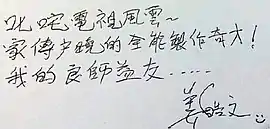 叱咤電視風雲~
家傳戶曉的全能製作奇才!
我的良師益友.....
姜皓文